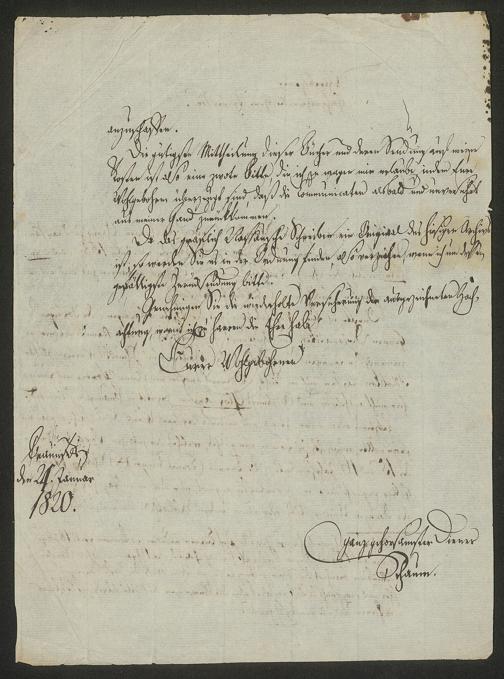 anzuschaffen.
Die gütigste Mittheilung dieser Bücher und deren Sendung auf meine
Kosten ist also eine zwote Bitte, die ich zu wagen mir erlaube, indem Euer
Wohlgebohren überzeugt sind, daß die Communicaten alsbald und unversehrt
aus meiner Hand zurückkommen.
Da das gräflich Schreiben ein Original des hiesigen Archivs
ist, so werden Sie es in der Ordnung finden, also verzeihen, wenn ich um dessen
gefälligste Zurücksendung bitte.
Genehmigen Sie die wiederholte Versicherung der ausgezeichneten Hoch-
achtung, womit ich zu harren die Ehre habe
Euer Wohlgebohren
den 21. Januar
1820.
ganz gehorsamster Diener
Schaum.